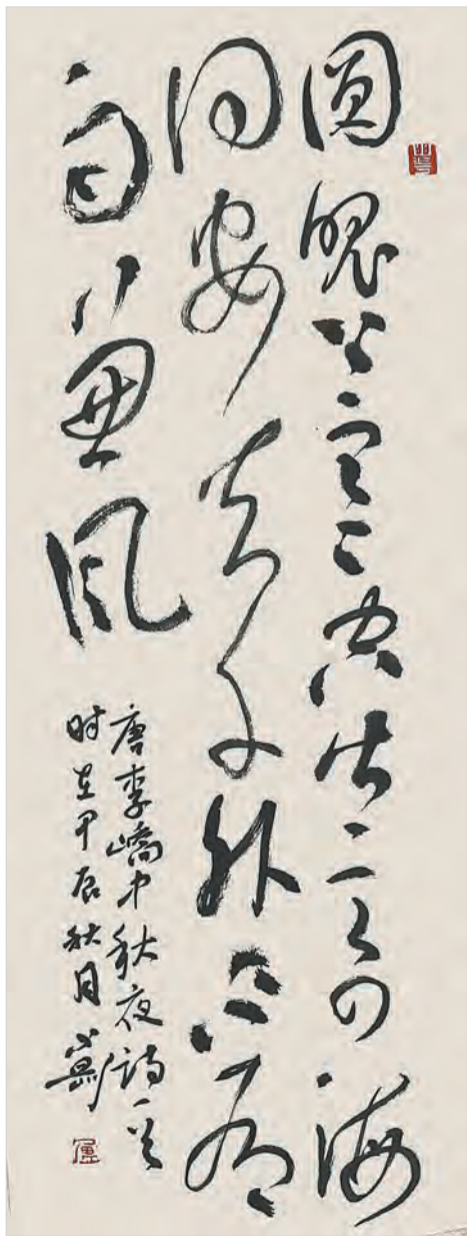 圓魄上寒空皆言四海
同安知千里外不有
雨兼風
唐李嶠中秋夜詩一首
时在甲辰秋月